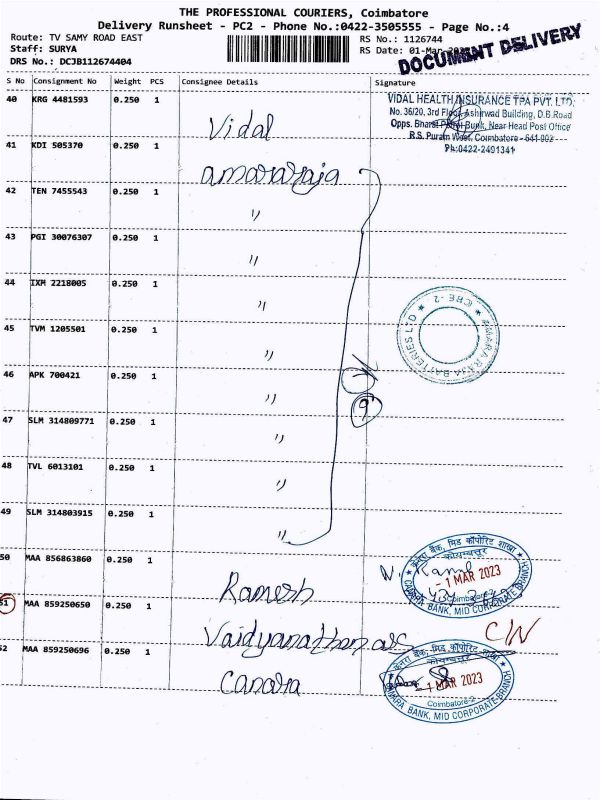 THE PROFESSIONAL COURIERS, Coimbatore
Delivery Runsheet - PC2 - Phone No.:0422-3505555 - Page No.:4
Route: TV SAMY ROAD EAST
Staff: SURYA
DRS No.: DCJB112674404
RS No.: 1126744
RS Date: 01-Mar-2023
DOCUMENT DELIVERY
S No Consignment No Weight PCS Consignee Details Signature
40 KRG 4481593 0.250 1 Vidal
VIDAL HEALTH INSURANCE TPA PVT. LTD.
No. 36/20, 3rd Floor, Ashirwad Building, D.B.Road
Opps. Bharat Petrol Bunk, Near Head Post Office
R.S. Puram West, Coimbatore - 641 002
Ph:0422-2491341
41 KDI 505370 0.250 1 amararaja
42 TEN 7455543 0.250 1 "
43 PGI 30076307 0.250 1 "
44 IXM 2218005 0.250 1 "
AMARA RAJA BATTERIES LTD ★ CBE-2 ★
45 TVM 1205501 0.250 1 "
46 APK 700421 0.250 1 "
9
47 SLM 314809771 0.250 1 "
48 TVL 6013101 0.250 1 "
49 SLM 314803915 0.250 1 "
50 MAA 856863860 0.250 1 Ramesh
केनरा बैंक, मिड कॉर्पोरेट शाखा
कोयम्बत्तूर
- 1 MAR 2023
Coimbatore-2
CANARA BANK, MID CORPORATE BRANCH
51 MAA 859250650 0.250 1 Vaidyanathan
C/N
52 MAA 859250696 0.250 1 Canara
केनरा बैंक, मिड कॉर्पोरेट शाखा
कोयम्बत्तूर
- 1 MAR 2023
Coimbatore-2
CANARA BANK, MID CORPORATE BRANCH